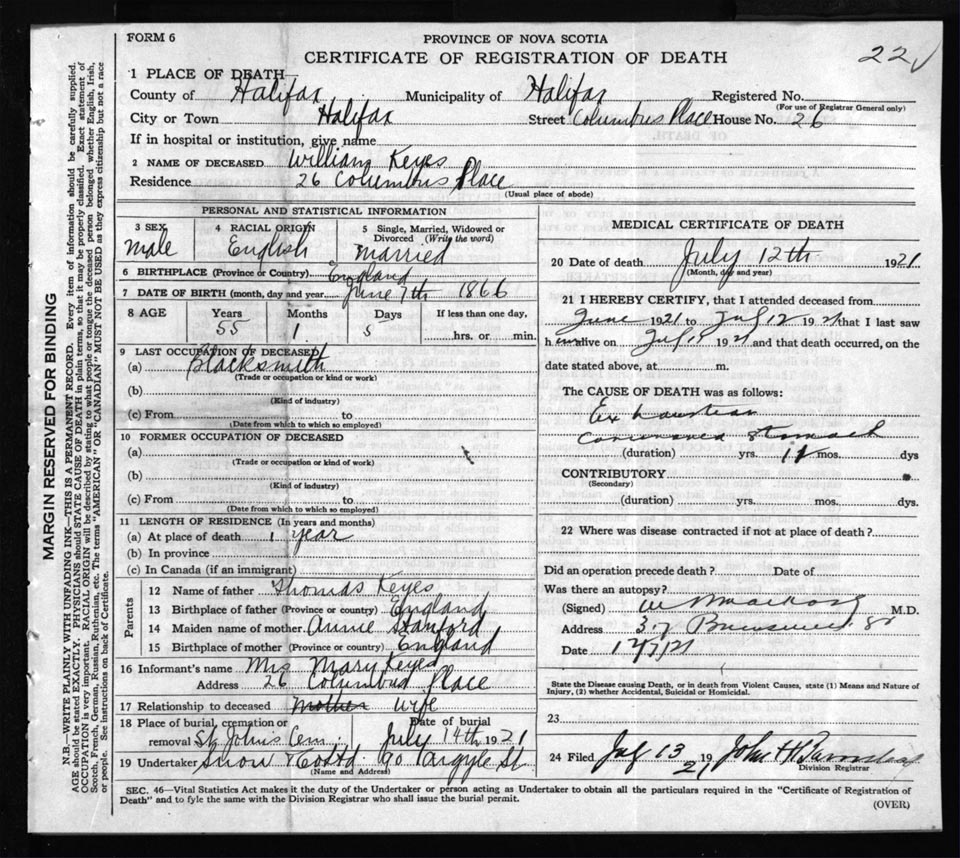 FORM 6
PROVINCE OF NOVA SCOTIA
CERTIFICATE OF REGISTRATION OF DEATH
22
MARGIN RESERVED FOR BINDING
N.B.—WRITE PLAINLY WITH UNFADING INK—THIS IS A PERMANENT RECORD. Every item of information should be carefully supplied.
AGE should be stated EXACTLY. PHYSICIANS should STATE CAUSE OF DEATH in plain terms, so that it may be properly classified. Exact statement of
OCCUPATION is very important. RACIAL ORIGIN will be described by stating to what people or tongue the deceased person belonged whether English, Irish,
Scotch, French, German, Russian, Ruthenian, etc. The terms "AMERICAN" or "CANADIAN" MUST NOT BE USED as they express citizenship but not a race
or people. See instructions on back of Certificate.
1 PLACE OF DEATH—
County of Halifax Municipality of Halifax Registered No.
(For use of Registrar General only)
City or Town Halifax Street Columbus Place House No. 26
If in hospital or institution, give name
2 NAME OF DECEASED William Keyes
Residence 26 Columbus Place
(Usual place of abode)
PERSONAL AND STATISTICAL INFORMATION
3 SEX male
4 RACIAL ORIGIN English
5 Single, Married, Widowed or Divorced (Write the word) Married
6 BIRTHPLACE (Province or Country) England
7 DATE OF BIRTH (month, day and year June 7th 1866
8 AGE Years 55 Months 1 Days 5 If less than one day, hrs. or min.
9 LAST OCCUPATION OF DECEASED
(a) Blacksmith
(Trade or occupation or kind or work)
(b)
(Kind of industry)
(c) From to
(Date from which to which so employed)
10 FORMER OCCUPATION OF DECEASED
(a)
(Trade or occupation or kind of work)
(b)
(Kind of industry)
(c) From to
(Date from which to which so employed)
11 LENGTH OF RESIDENCE (In years and months)
(a) At place of death 1 year
(b) In province
(c) In Canada (if an immigrant)
Parents
12 Name of father Thomas Keyes
13 Birthplace of father (Province or country) England
14 Maiden name of mother Annie Stanford
15 Birthplace of mother (Province or country) England
16 Informant's name Mrs Mary Keyes
Address 26 Columbus Place
17 Relationship to deceased Mother Wife
18 Place of burial, cremation or removal St. John's Cem. Date of burial July 14th 1921
19 Undertaker Snow & Co Ltd 90 Argyle St
(Name and Address)
MEDICAL CERTIFICATE OF DEATH
20 Date of death July 12th 1921
(Month, day and year)
21 I HEREBY CERTIFY, that I attended deceased from
June 1921 to July 12 1921 that I last saw
h alive on July 1921 and that death occurred, on the
date stated above, at m.
The CAUSE OF DEATH was as follows:
Exhaustion
stomach
(duration) yrs. mos. dys
CONTRIBUTORY
(Secondary)
(duration) yrs. mos. dys.
22 Where was disease contracted if not at place of death?
Did an operation precede death? Date of
Was there an autopsy?
(Signed) M.D.
Address 37 Brunswick St
Date 12/7/21
State the Disease causing Death, or in death from Violent Causes, state (1) Means and Nature of
Injury, (2) whether Accidental, Suicidal or Homicidal.
23
24 Filed July 13 1921 John H
Division Registrar
SEC. 46—Vital Statistics Act makes it the duty of the Undertaker or person acting as Undertaker to obtain all the particulars required in the "Certificate of Registration of
Death" and to fyle the same with the Division Registrar who shall issue the burial permit.
(OVER)